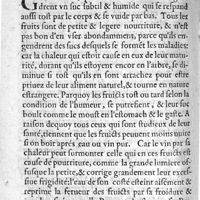 Gdrent vn suc subtil & humide qui se respand
aussi tost par le corps & se vuide par bas. Tous les
fruits sont de petite & legere nourriture, & n'est
pas bon d'en vser abondamment, parce qu'ils en-
gendrent des sucs desquels se forment les maladies:
car la chaleur qui estoit cause en eux de leur matu-
rité, durant qu'ils estoyent encor en l'arbre, se di-
minue si tost qu'ils en sont arrachez pour estre
priuez de leur aliment naturel, & tourne en nature
estrangere. Parquoy les fruicts tost ou tard selon la
condition de l'humeur, se putrefient, & leur suc
boult comme le moust en l'estomach & le gaste. A
raison dequoy tous ceux qui sont studieux de leur
santé, tiennent que les fruicts peuuent moins nuire
si on boit apres eau ou vin pur. Car le vin par sa
chaleur peut surmonter celle qui en ces fruicts est
cause de pourriture, comme la grande lumiere of-
fusque la petite, & corrige grandement leur exces-
siue frigidité: l'eau de son costé esteint aisément &
reprime la ferueur des fruicts par sa froidure &